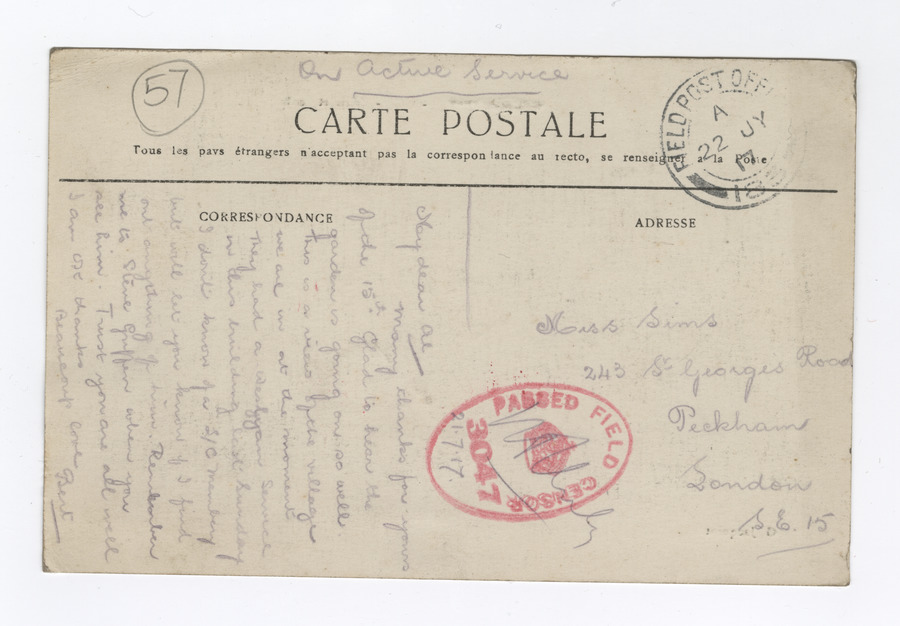 57
On Active Service
CARTE POSTALE
Tous les pays étrangers n'acceptant pas la correspondance au recto, se renseigner à la Poste
FIELD POST OFFI
A
22 JY
17
CORRESPONDANCE
ADRESSE
My dear
many thanks for yours
of the 15th Glad to hear the
garden is going on so well.
This is a view of the village
we are in at the moment
They had a Wesleyan Service
in this building last Sunday
I don't know of a
but will let you know if I find
out anything of him. Remember
me to Steve Griffen when you
see him. Trust you are all well
I am OK thanks
Beaucoup love Bert
Miss Sims
243 St Georges Road
Peckham
London
S.E. 15
PASSED FIELD CENSOR
3047
21.7.17.